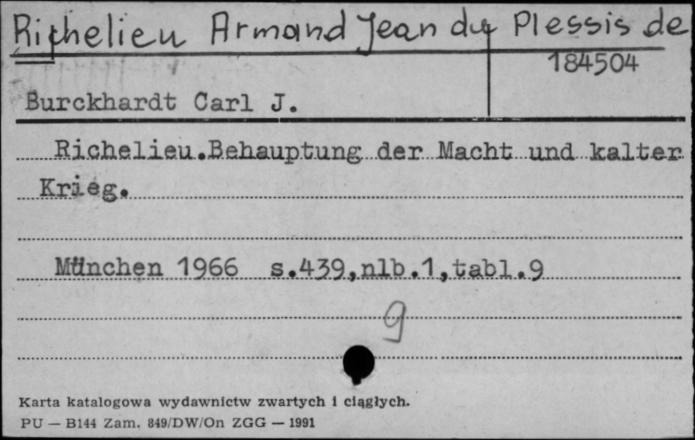 Richelieu Armand Jean du Plessis de
184504
Burckhardt Carl J.
Richelieu.Behauptung der Macht und kalter
Krieg.
München 1966 s.439,nlb.1,tabl.9
9
Karta katalogowa wydawnictw zwartych i ciągłych.
PU — B144 Zam. 849/DW/On ZGG — 1991